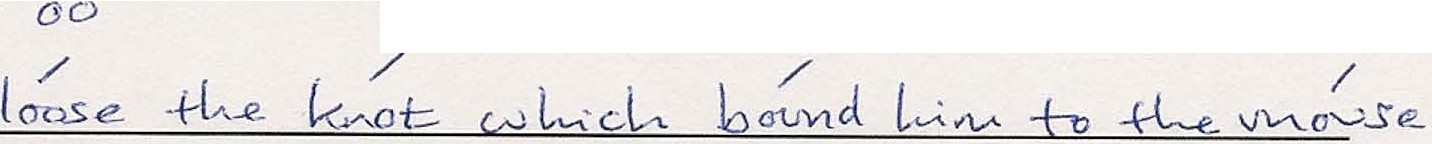 oo
loose the knot which bound him to the mouse